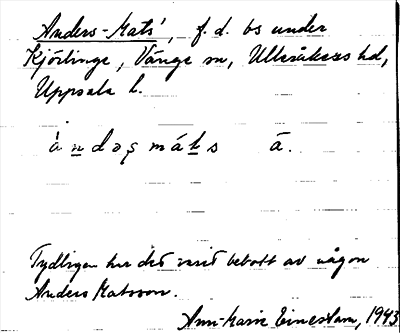 Anders-Mats', f.d. bs under
Kjörlinge, Vänge sn, Ulleråkers hd,
Uppsala l.
àndəʂmát̲s ā.
Tydligen har det varit bebott av någon
Anders Matsson.
Ann-Marie 1943